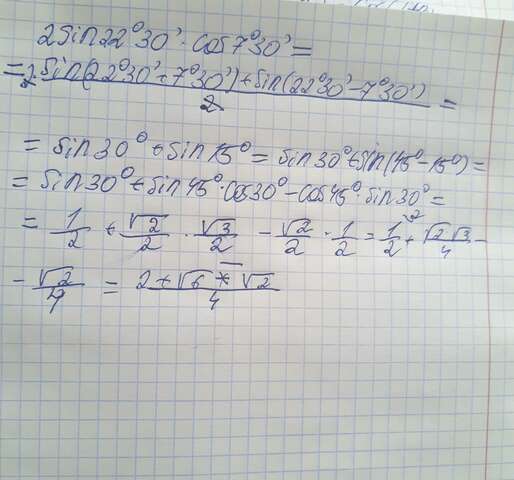 2sin22°30'·cos7°30'=
=2·sin(22°30'+7°30')+sin(22°30'-7°30')/2=
=sin30°+sin15°=sin30°+sin(45°-15°)=
=sin30°+sin45°·cos30°-cos45°·sin30°=
=1/2+√2/2·√3/2-√2/2·1/2=1/2+√2√3/4-
-√2/4=2+√6-√2/4